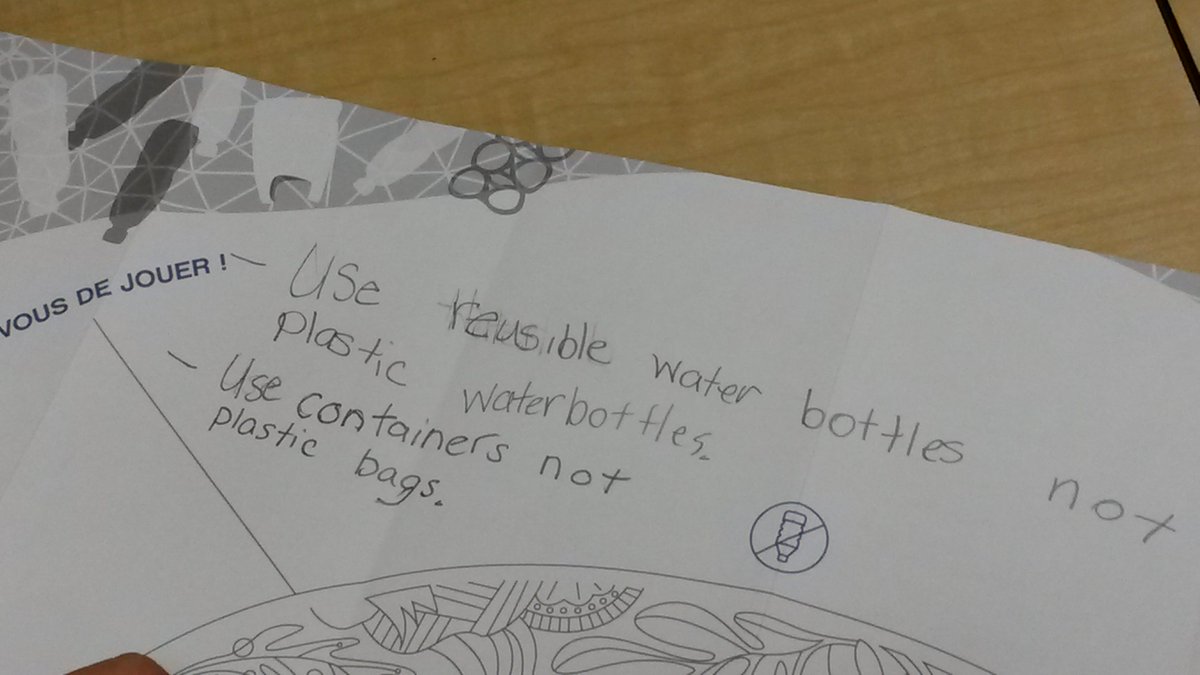 VOUS DE JOUER !
- Use reusible water bottles not
plastic waterbottles.
- Use containers not
plastic bags.